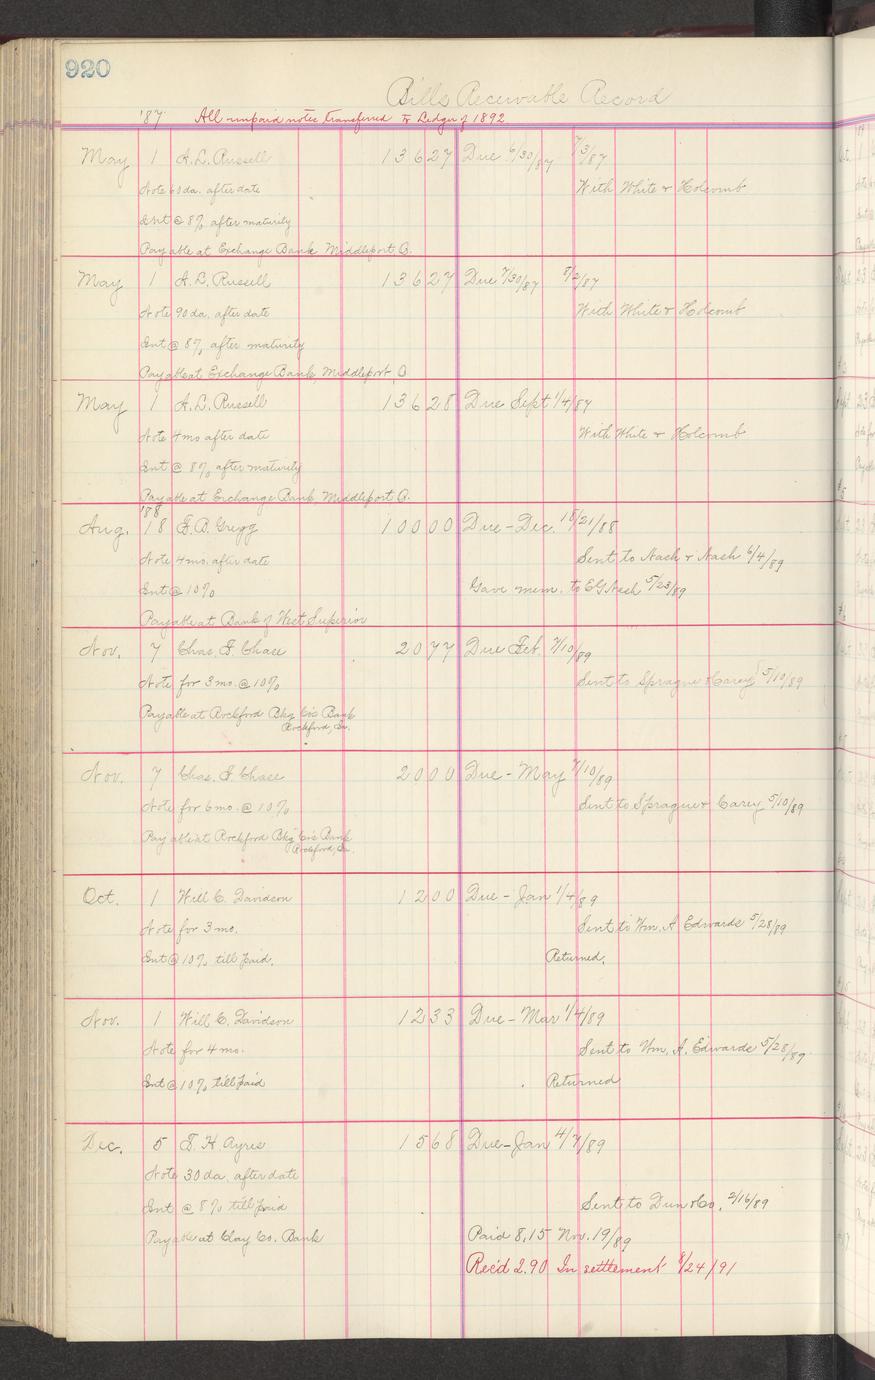 920
Bills Receivable Record
'87 All unpaid notes transferred to Ledger of 1892
May 1 A.L. Russell 136 27 Due 6/30/87 7/3/87
Note 60 da. after date With White & Holcomb
Int @ 8% after maturity
Payable at Exchange Bank Middleport, O.
May 1 A.L. Russell 136 27 Due 7/30/87 8/2/87
Note 90 da. after date With White & Holcomb
Int @ 8% after maturity
Payable at Exchange Bank, Middleport, O
May 1 A.L. Russell 136 28 Due Sept 1/4/87
Note 4 mo after date With White & Holcomb
Int @ 8% after maturity
Payable at Exchange Bank, Middleport, O.
'88
Aug. 18 F.B. Gregg 100 00 Due - Dec. 18/21/88
Note 4 mo. after date Sent to Nash & Nash 6/4/89
Int @ 10% Gave mem. to EG Nash 5/23/89
Payable at Bank of West Superior
Nov. 7 Chas. F. Chase 20 77 Due Feb. 7/10/89
Note for 3 mo. @ 10% Sent to Sprague & Carey 5/10/89
Payable at Rockford Bkg Bank
Rockford, Ia.
Nov. 7 Chas. F. Chase 20 00 Due - May 7/10/89
Note for 6 mo. @ 10% Sent to Sprague & Carey 5/10/89
Payable at Rockford Bkg Bank
Rockford, Ia.
Oct. 1 Will C. Davidson 12 00 Due - Jan 1/4/89
Note for 3 mo. Sent to Wm. A Edwards 5/28/89
Int @ 10% till paid. Returned.
Nov. 1 Will C. Davidson 12 33 Due - Mar 1/4/89
Note for 4 mo. Sent to Wm. A. Edwards 5/28/89
Int @ 10% till paid Returned
Dec. 5 F. H. Ayres 15 68 Due - Jan 4/7/89
Note 30 da. after date
Int @ 8% till paid Sent to Dun & Co. 2/16/89
Payable at Clay Co. Bank Paid 8.15 Nov. 19/89
Rec'd 2.90 In settlement 8/24/91